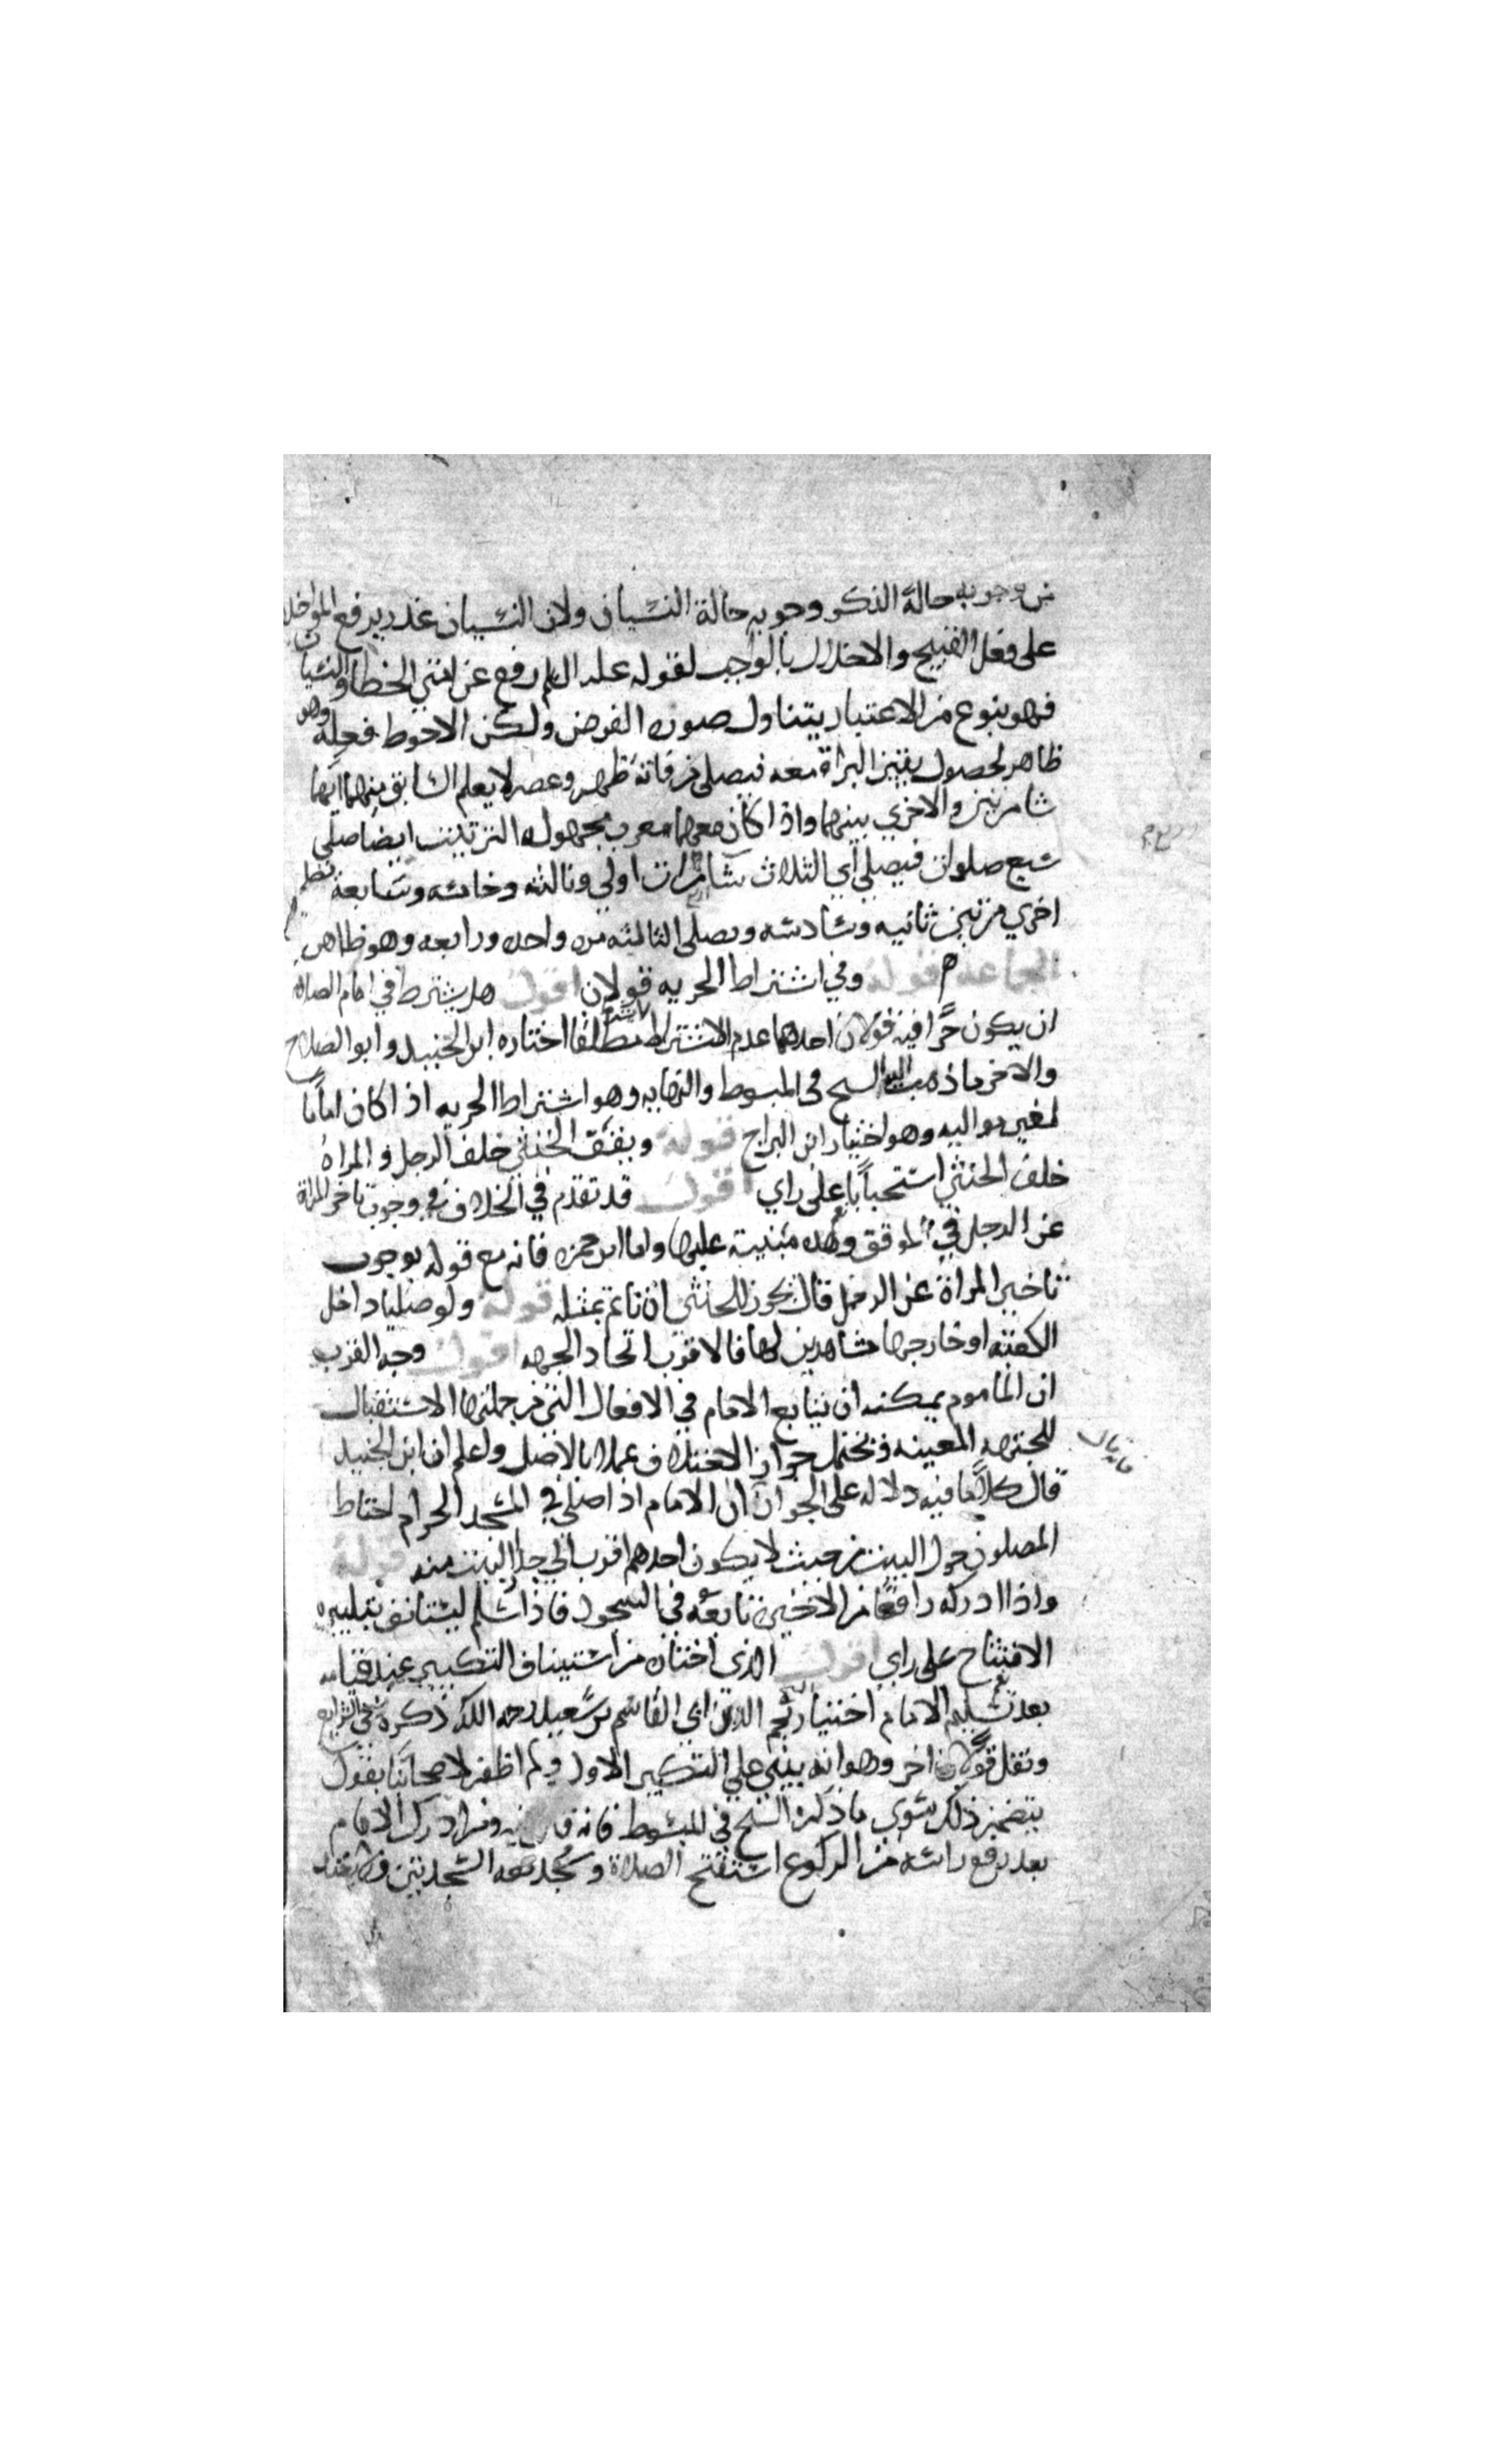 من وجوبه حالة الذكر وجوبه حالة النسيان ولان النسيان عذر يرفع المواخذة
على فعل القبيح والاخلال بالواجب لقوله عليه السلم رفع عن امتي الخطا والنسيان
فهو بنوع من الاعتبار يتناول صورة الفرض ولكن الاحوط فعله وهو
ظاهر لحصول يقين البراة معه فيصلي من فاته ظهر وعصر لا يعلم السابق منهما ايهما
شا مرتين والاخرى بينهما واذا كان معهما مغرب مجهوله الترتيب ايضا صلى
سبع صلوات فيصلي اي الثلاث شا مرات اولى وثالثه وخامسه وسابعة
اخرى مرتين ثانيه وسادسه ويصلي الثالثه مرة واحده ورابعه وهو ظاهر
الجماعة قوله وفي اشتراط الحريه قولان اقول هل يشترط في امام الصلاة
ان يكون حرا فيه قولان احدهما عدم الاشتراط مطلقا اختاره ابن الجنيد وابو الصلاح
والآخر ما ذهب اليه الشيخ في المبسوط والنهايه وهو اشتراط الحريه اذا كان اماما
لغير مواليه وهو اختيار ابن البراج قوله ويقف الخنثى خلف الرجل والمراة
خلف الخنثى استحبابا على راي اقول قد تقدم في الخلاف في وجوب تاخر المراة
عن الرجل في الموقف وهذه مبنية عليها واما ابن حمزه فانه مع قوله بوجوب
تاخير المراة عن الرجل قال يجوز للخنثى ان تاتم بمثله قوله ولو صليا داخل
الكعبة او خارجها مشاهدين لها فالاقرب اتحاد الجهه اقول وجه القرب
ان الماموم يمكنه ان يتابع الامام في الافعال التي من جملتها الاستقبال
للجهه المعينه ويحتمل جواز الاختلاف عملا بالاصل واعلم ان ابن الجنيد
قال كلاما فيه دلاله على الجواز ان الامام اذا صلى في المسجد الحرام احتاط
المصلون حول البيت من حيث لا يكون احدهم اقرب الى جدار البيت منه قوله
واذا ادركه رافعا من الاخيره تابعه في السجود فاذا سلم ليستانف بتكبيره
الافتتاح على راي اقول الذي اختاره من استيناف التكبير عند قيامه
بعد تسليم الامام اختيار نجم الدين ابي القاسم بن سعيد رحمه الله ذكره في الشرايع
ونقل قولا اخر وهو انه يبني على التكبير الاول ولم اظفر لاصحابنا بقول
يتضمن ذلك سوى ما ذكره الشيخ في المبسوط فانه قال فيه ومن ادرك الامام
بعد رفع راسه من الركوع استفتح الصلاة وسجد معه السجدتين ولا يعتد